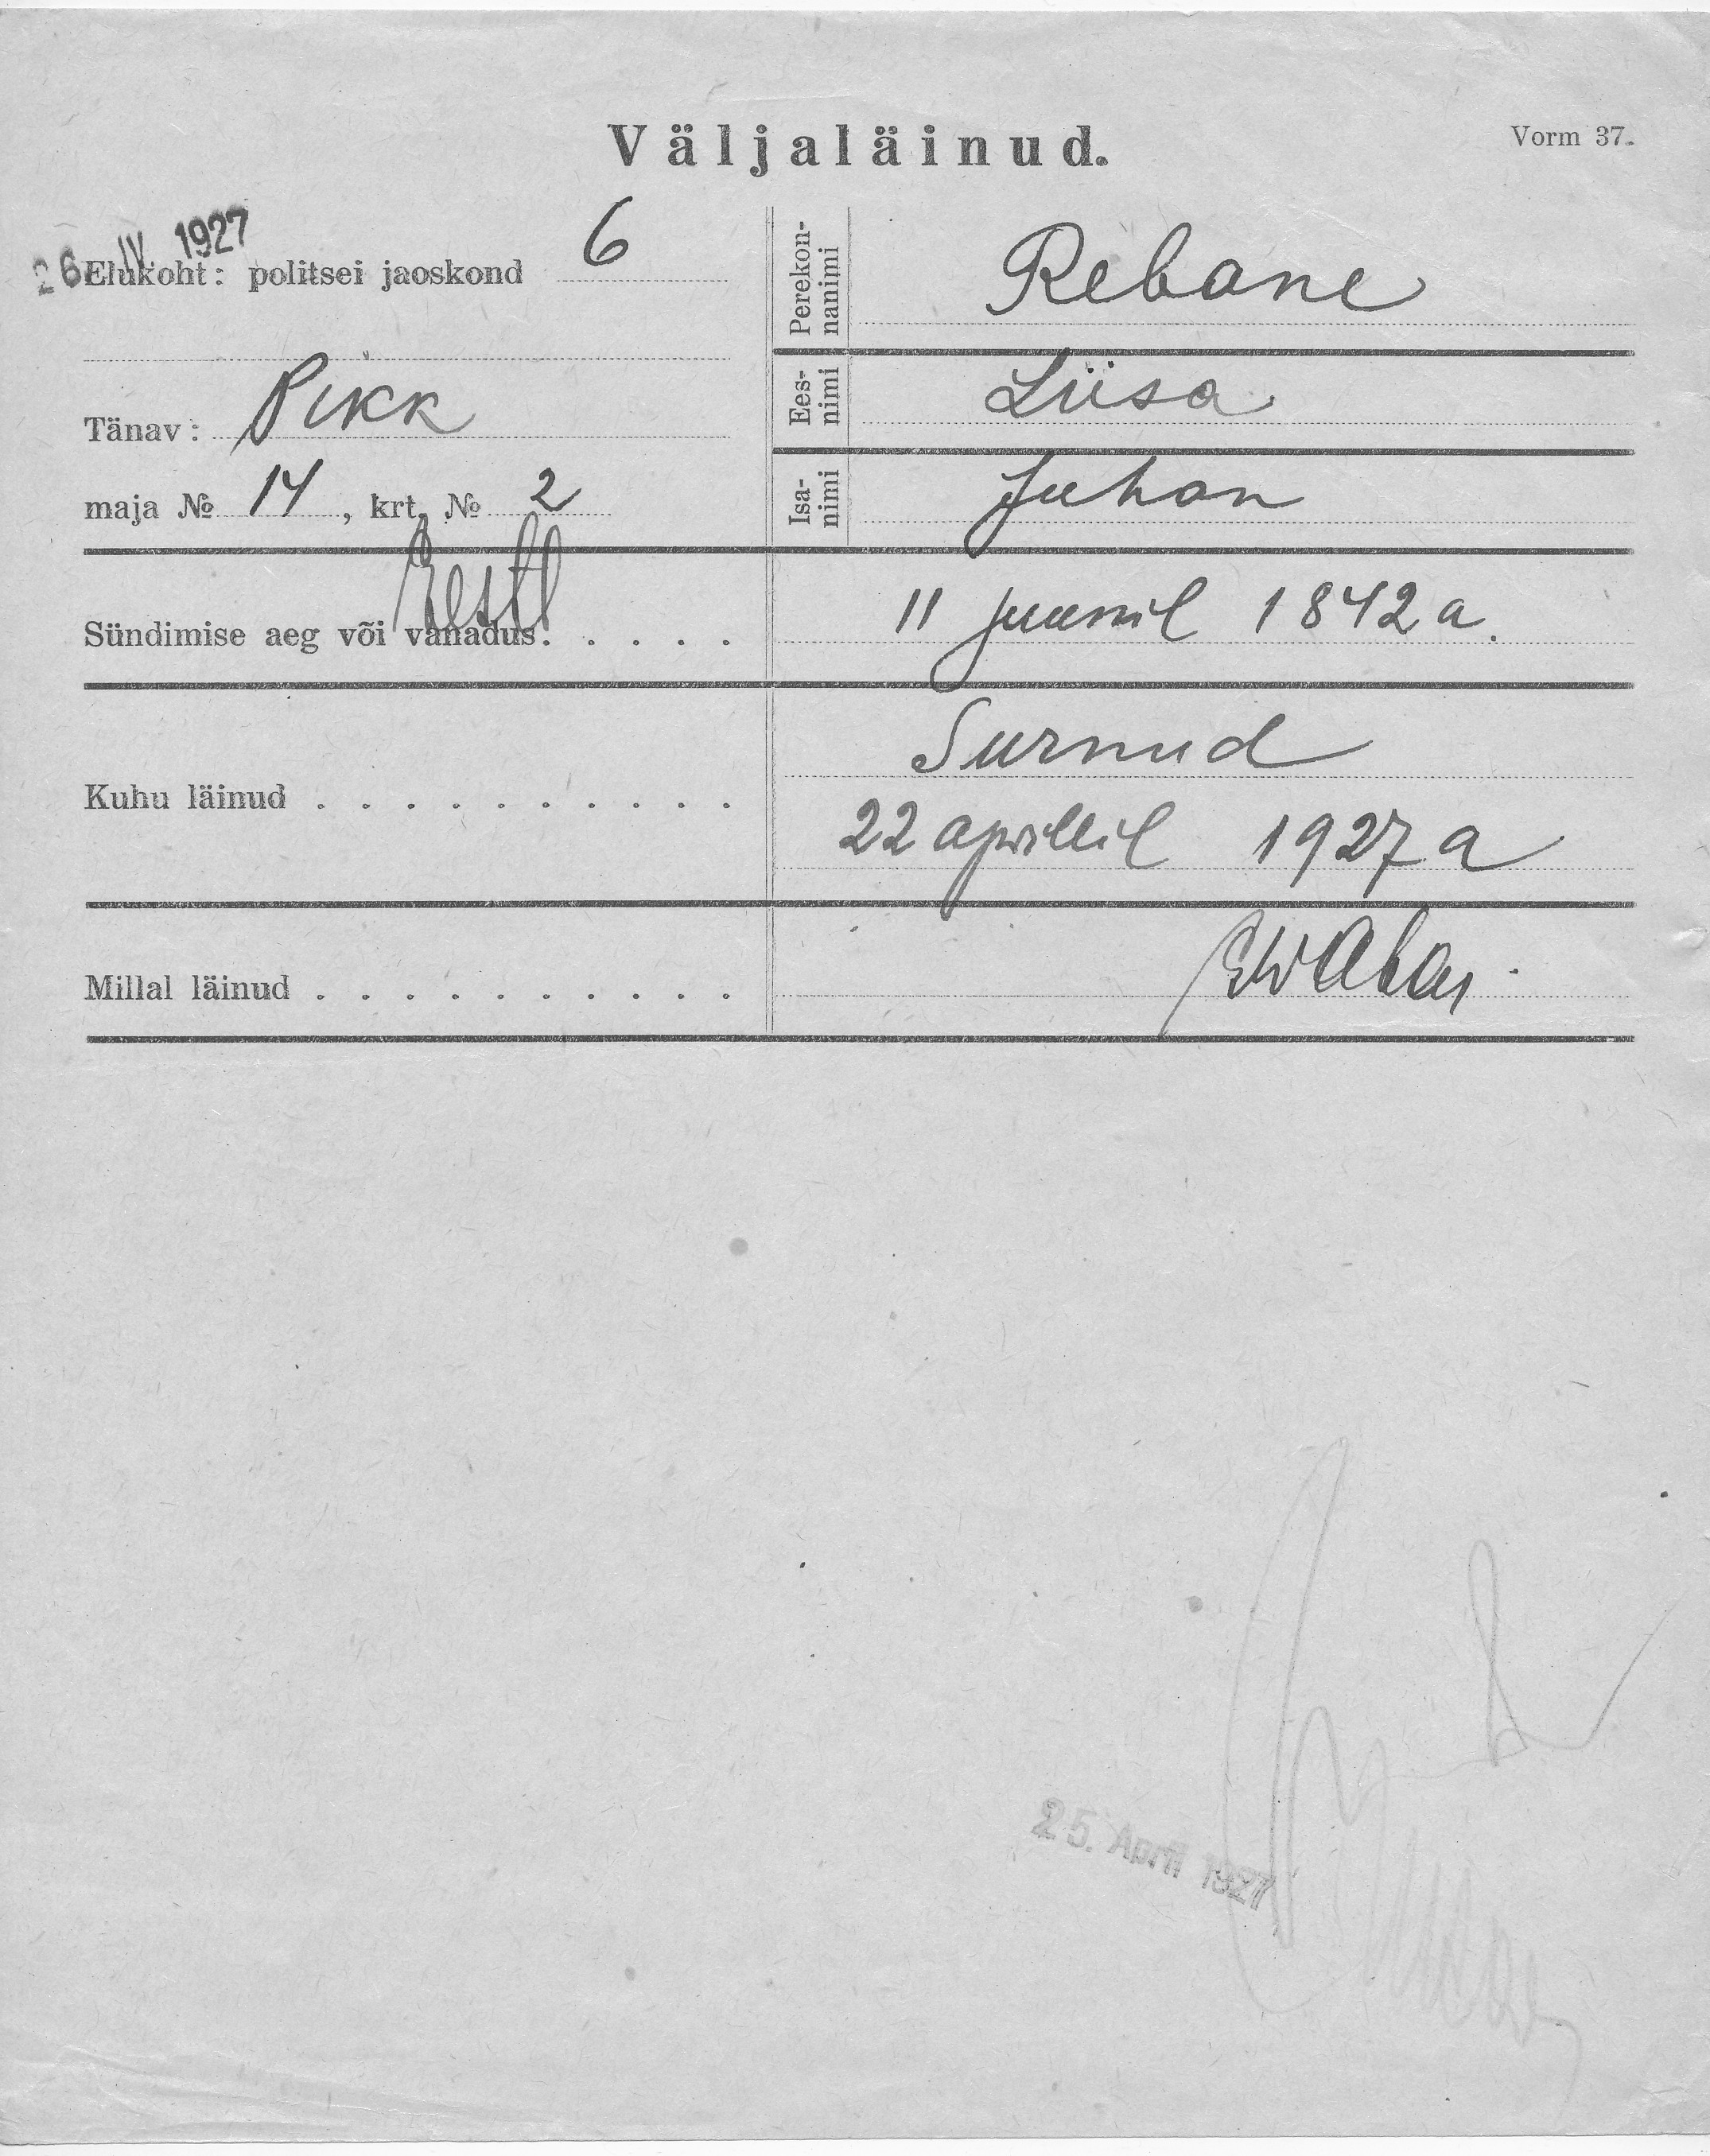 Väljaläinud.
Vorm 37.
26. IV. 1927
Elukoht: politsei jaoskond 6
Tänav: Pikk
maja № 14, krt. № 2
Perekon-
nanimi
Rebane
Ees-
nimi
Liisa
Isa-
nimi
Juhan
Eestl
Sündimise aeg või vanadus: . . . . 11 juunil 1842 a.
Kuhu läinud . . . . . . . . . . Surnud
22 aprillil 1927 a
Millal läinud . . . . . . . . . .
25. April 1927